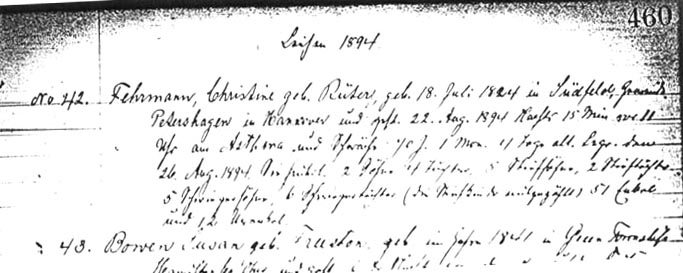 460
Leichen 1894
No 42. Fehrmann, Christine geb. Rüter, geb. 18. Juli 1824 in Südfelde, Gemeinde
Petershagen in Hannover und gest. 22. Aug. 1894 Nachts 15 Min. vor 11
Uhr am Asthma und Schwäche 70 J. 1 Mon. 4 Tage alt. Begr. den
26. Aug. 1894. Sie hinterl. 2 Söhne 4 Töchter, 5 Stiefsöhne, 2 Stieftöchter
5 Schwiegersöhne, 6 Schwiegertöchter (die Stiefkinder mitgezählt) 51 Enkel
und 12 Urenkel.
43. Bowen Susan geb. geb. im Jahre in Green Township
Hamilton und